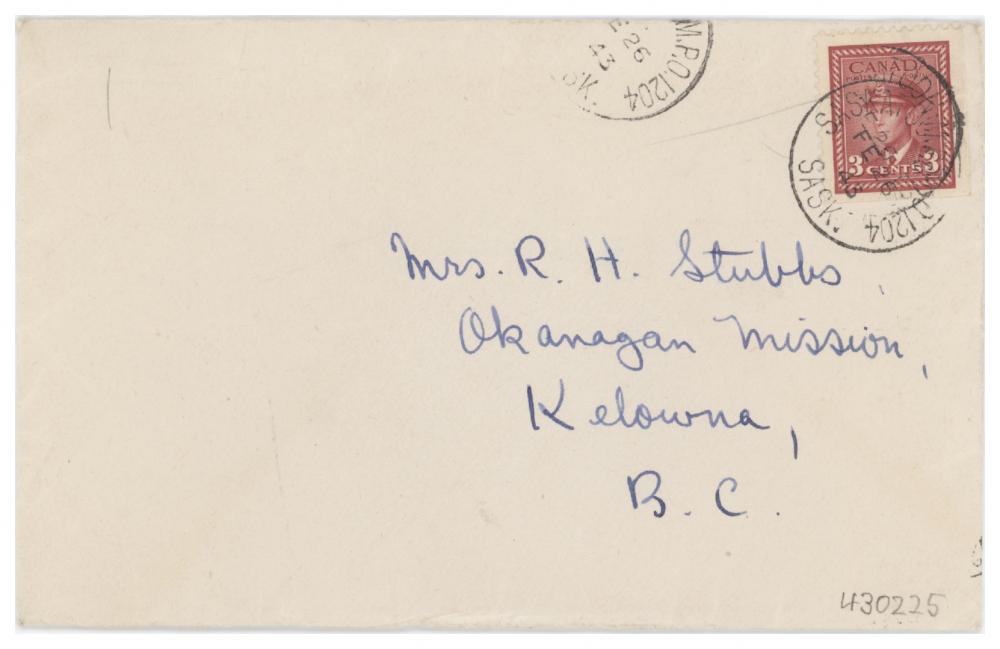 M.P.O. 1204
FE 26
43
SK.
CANADA
3 CENTS 3
M.P.O. 1204
FE 26
43
SASK.
Mrs. R. H. Stubbs,
Okanagan Mission,
Kelowna,
B. C.
430225